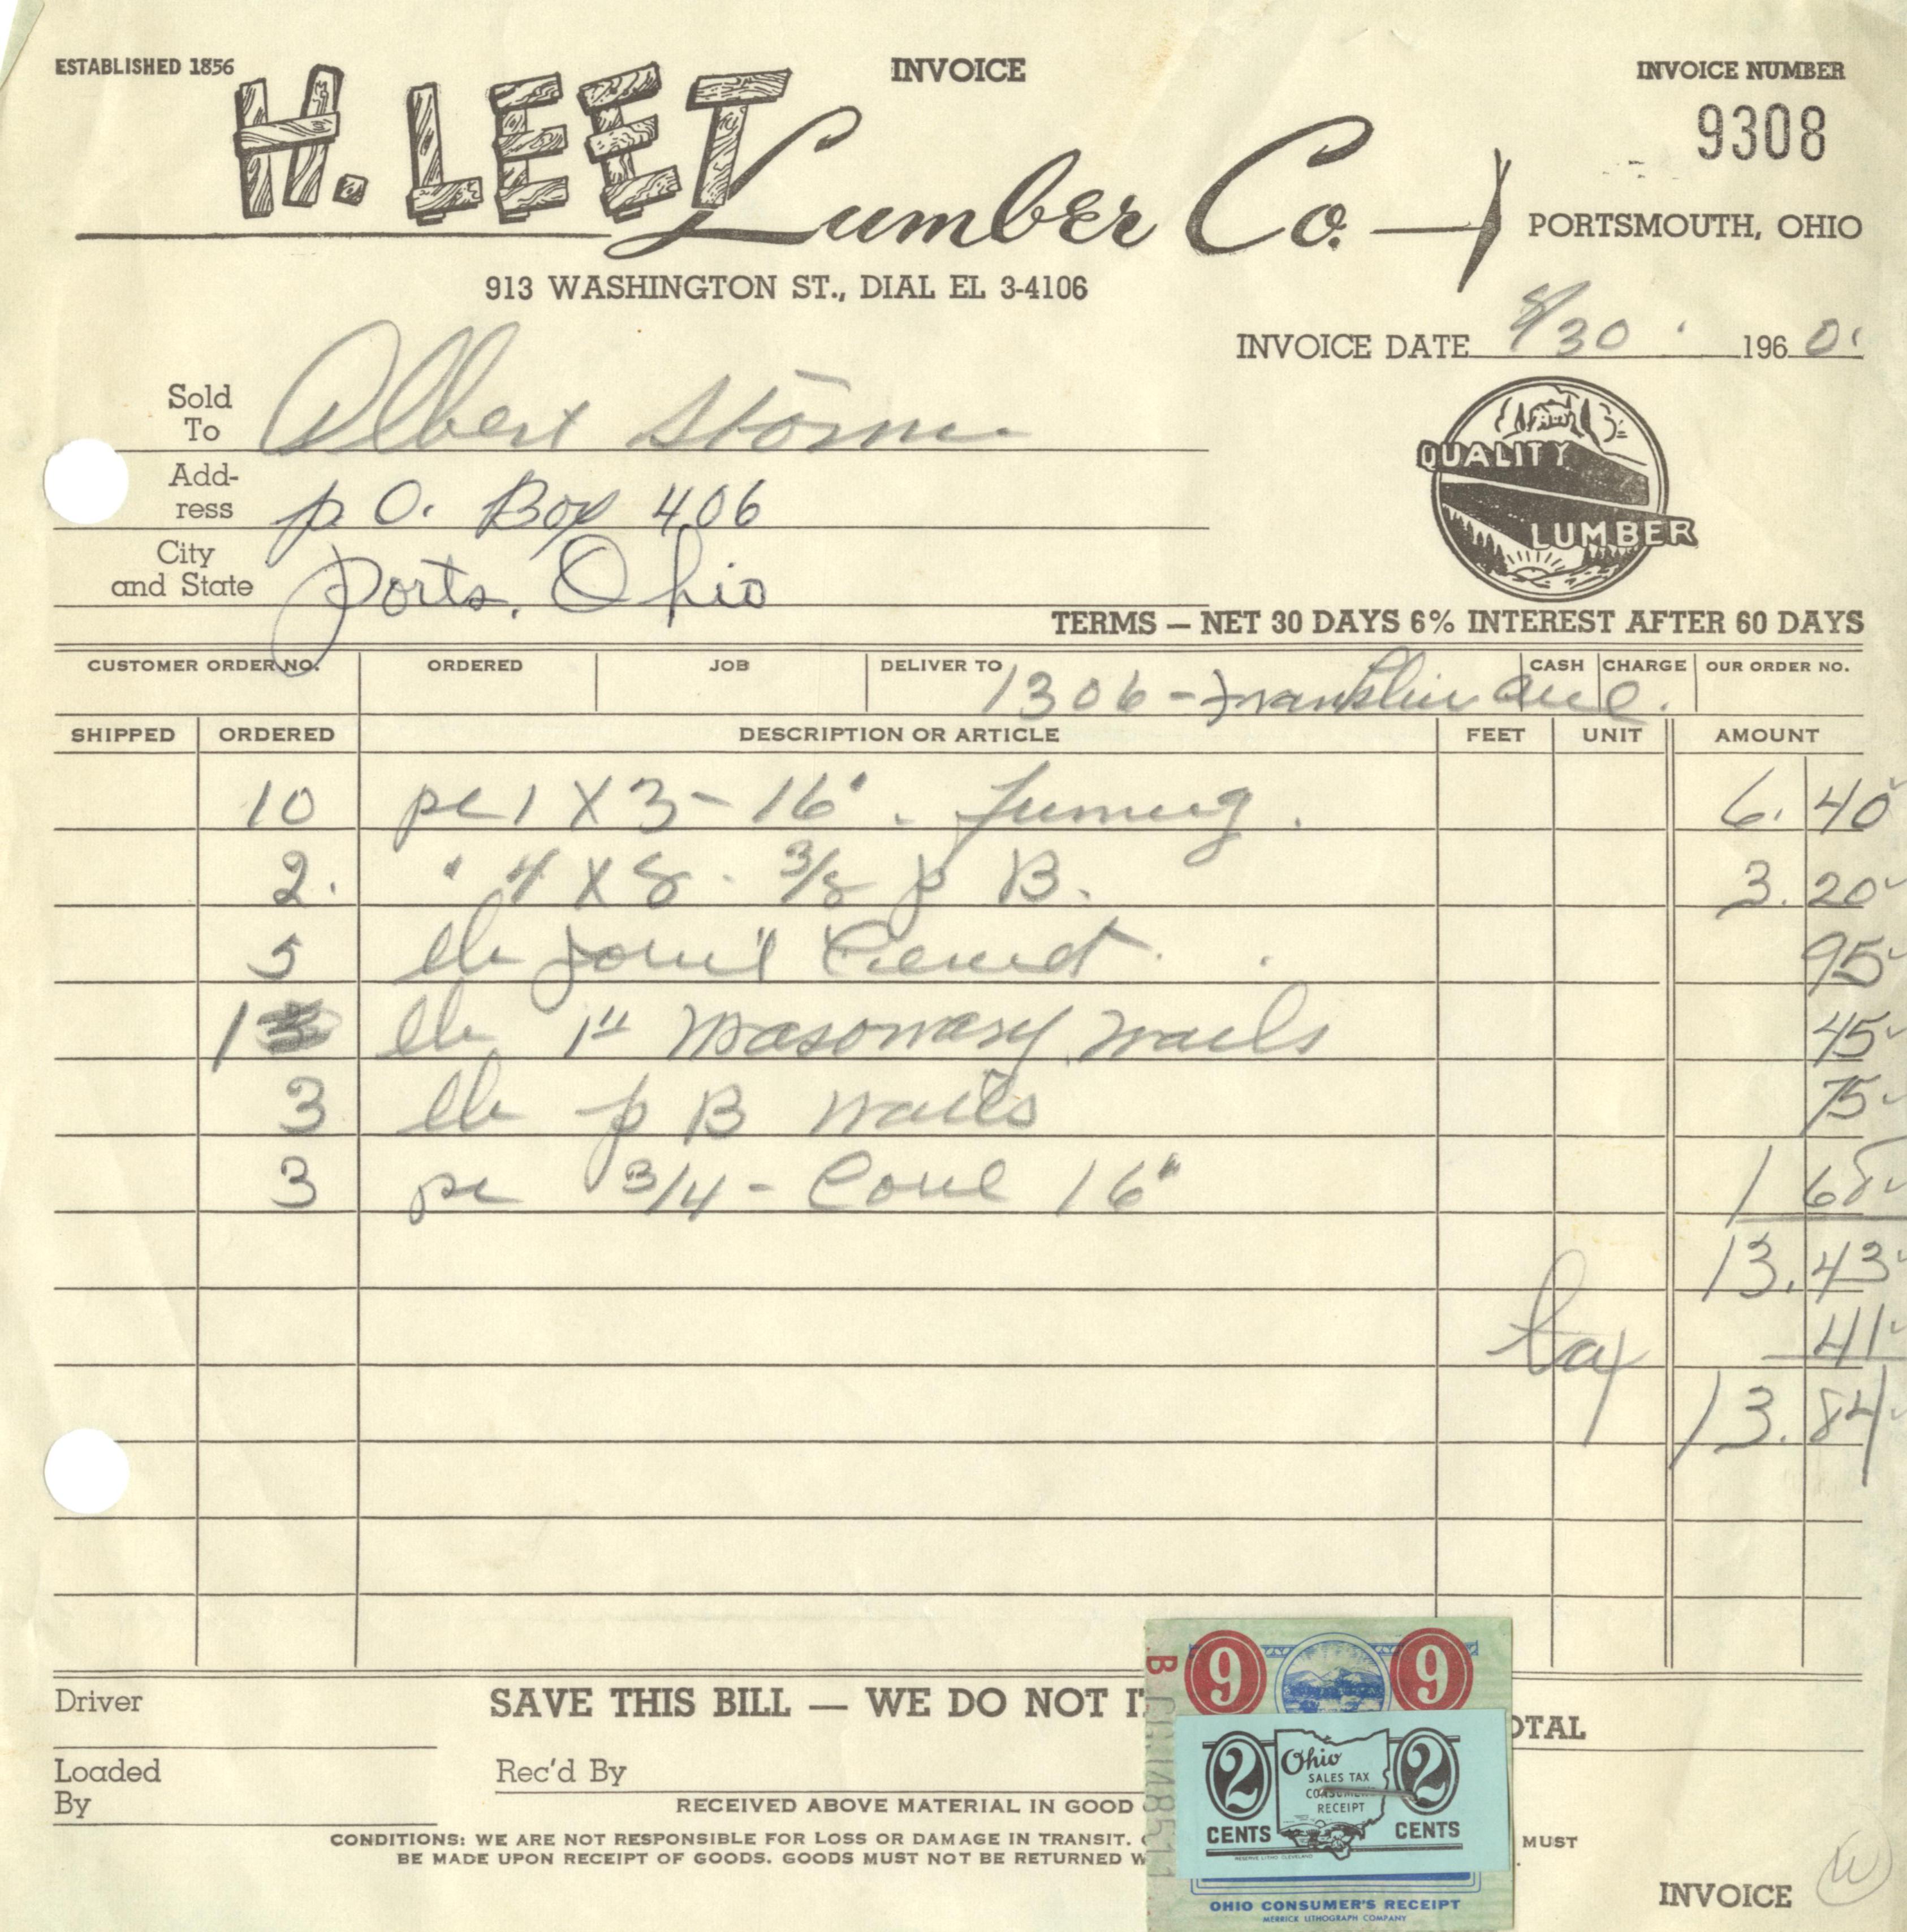 ESTABLISHED 1856
INVOICE
INVOICE NUMBER
9308
H. LEET Lumber Co.
PORTSMOUTH, OHIO
913 WASHINGTON ST., DIAL EL 3-4106
INVOICE DATE 8/30 1960
Sold To Albert Storm
Add-ress P.O. Box 406
City and State Ports, Ohio
QUALITY
LUMBER
TERMS — NET 30 DAYS 6% INTEREST AFTER 60 DAYS
CUSTOMER ORDER NO. ORDERED JOB DELIVER TO 1306 - Franklin Ave. CASH CHARGE OUR ORDER NO.
SHIPPED ORDERED DESCRIPTION OR ARTICLE FEET UNIT AMOUNT
10 pc 1 X 3 - 16' 6.40
2. " 4 X 8 - 3/8 p B. 3.20
5 lb Joint Cement 95
1 lb 1" Masonary nails 45
3 lb p B nails 75
3 pc 3/4 - Cove 16" 1 68
13.43
tax 41
13.84
Driver
SAVE THIS BILL — WE DO NOT
OTAL
Loaded By
Rec'd By
RECEIVED ABOVE MATERIAL IN GOOD
CONDITIONS: WE ARE NOT RESPONSIBLE FOR LOSS OR DAMAGE IN TRANSIT.
MUST
BE MADE UPON RECEIPT OF GOODS. GOODS MUST NOT BE RETURNED
INVOICE
W
B
9 9
2 CENTS
Ohio
SALES TAX
CONSUMER'S
RECEIPT
2 CENTS
RESERVE LITHO CLEVELAND
OHIO CONSUMER'S RECEIPT
MERRICK LITHOGRAPH COMPANY